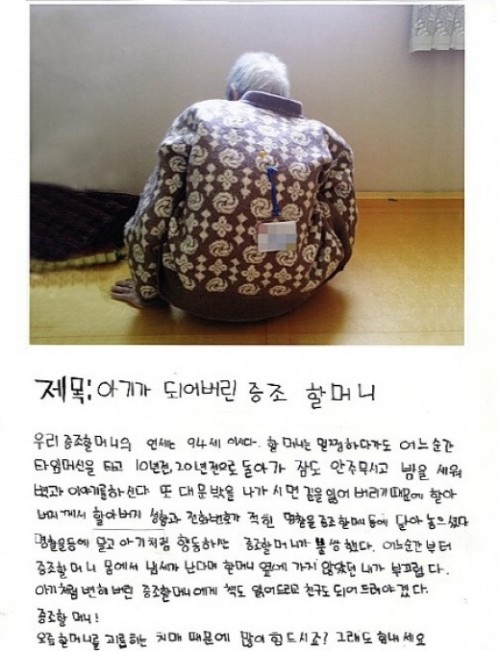 제목: 아기가 되어버린 증조 할머니
우리 증조할머니의 연세는 94세 이시다. 할머니는 멀쩡하다가도 어느순간
타임머신을 타고 10년전, 20년전으로 돌아가 잠도 안주무시고 밤을 세워
벽과 이야기를하신다. 또 대문밖을 나가시면 길을 잃어 버리기때문에 할아
버지께서 할아버지 성함과 전화번호가 적힌 명찰을 증조할머니 등에 달아 놓으셨다
명찰을등에 달고 아기처럼 행동하는 증조할머니가 불쌍했다. 어느순간부터
증조할머니 몸에서 냄새가 난다며 할머니 옆에 가지 않았던 내가 부끄럽다.
아기처럼 변해버린 증조할머니에게 책도 읽어드리고 친구도 되어 드려야 겠다.
증조할머니!
요즘 할머니를 괴롭히는 치매 때문에 많이 힘드시죠? 그래도 힘내세요